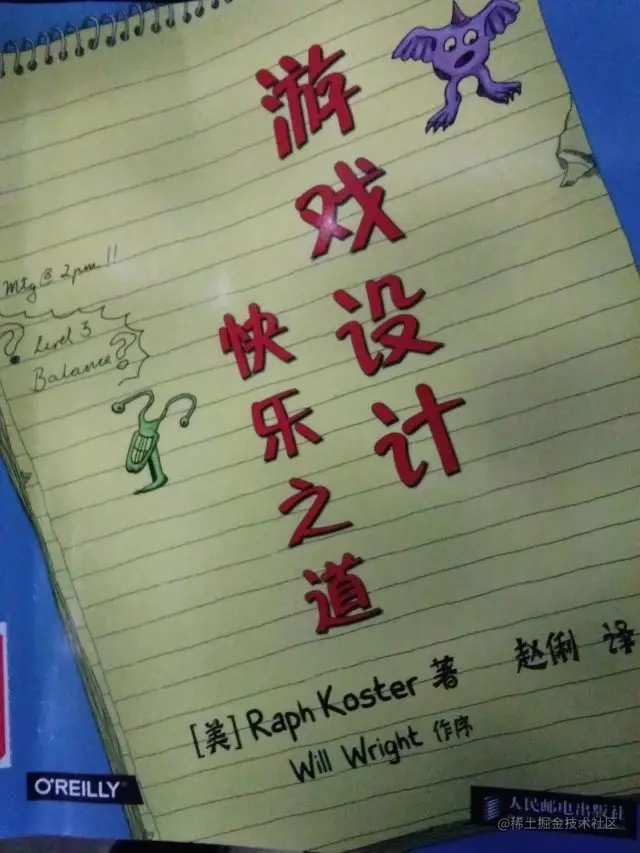 游戏设计
快乐之道
Mtg @ 2pm !!
? Level 3
Balance?
[美] Raph Koster 著 赵俐 译
Will Wright 作序
O'REILLY
人民邮电出版社
@稀土掘金技术社区